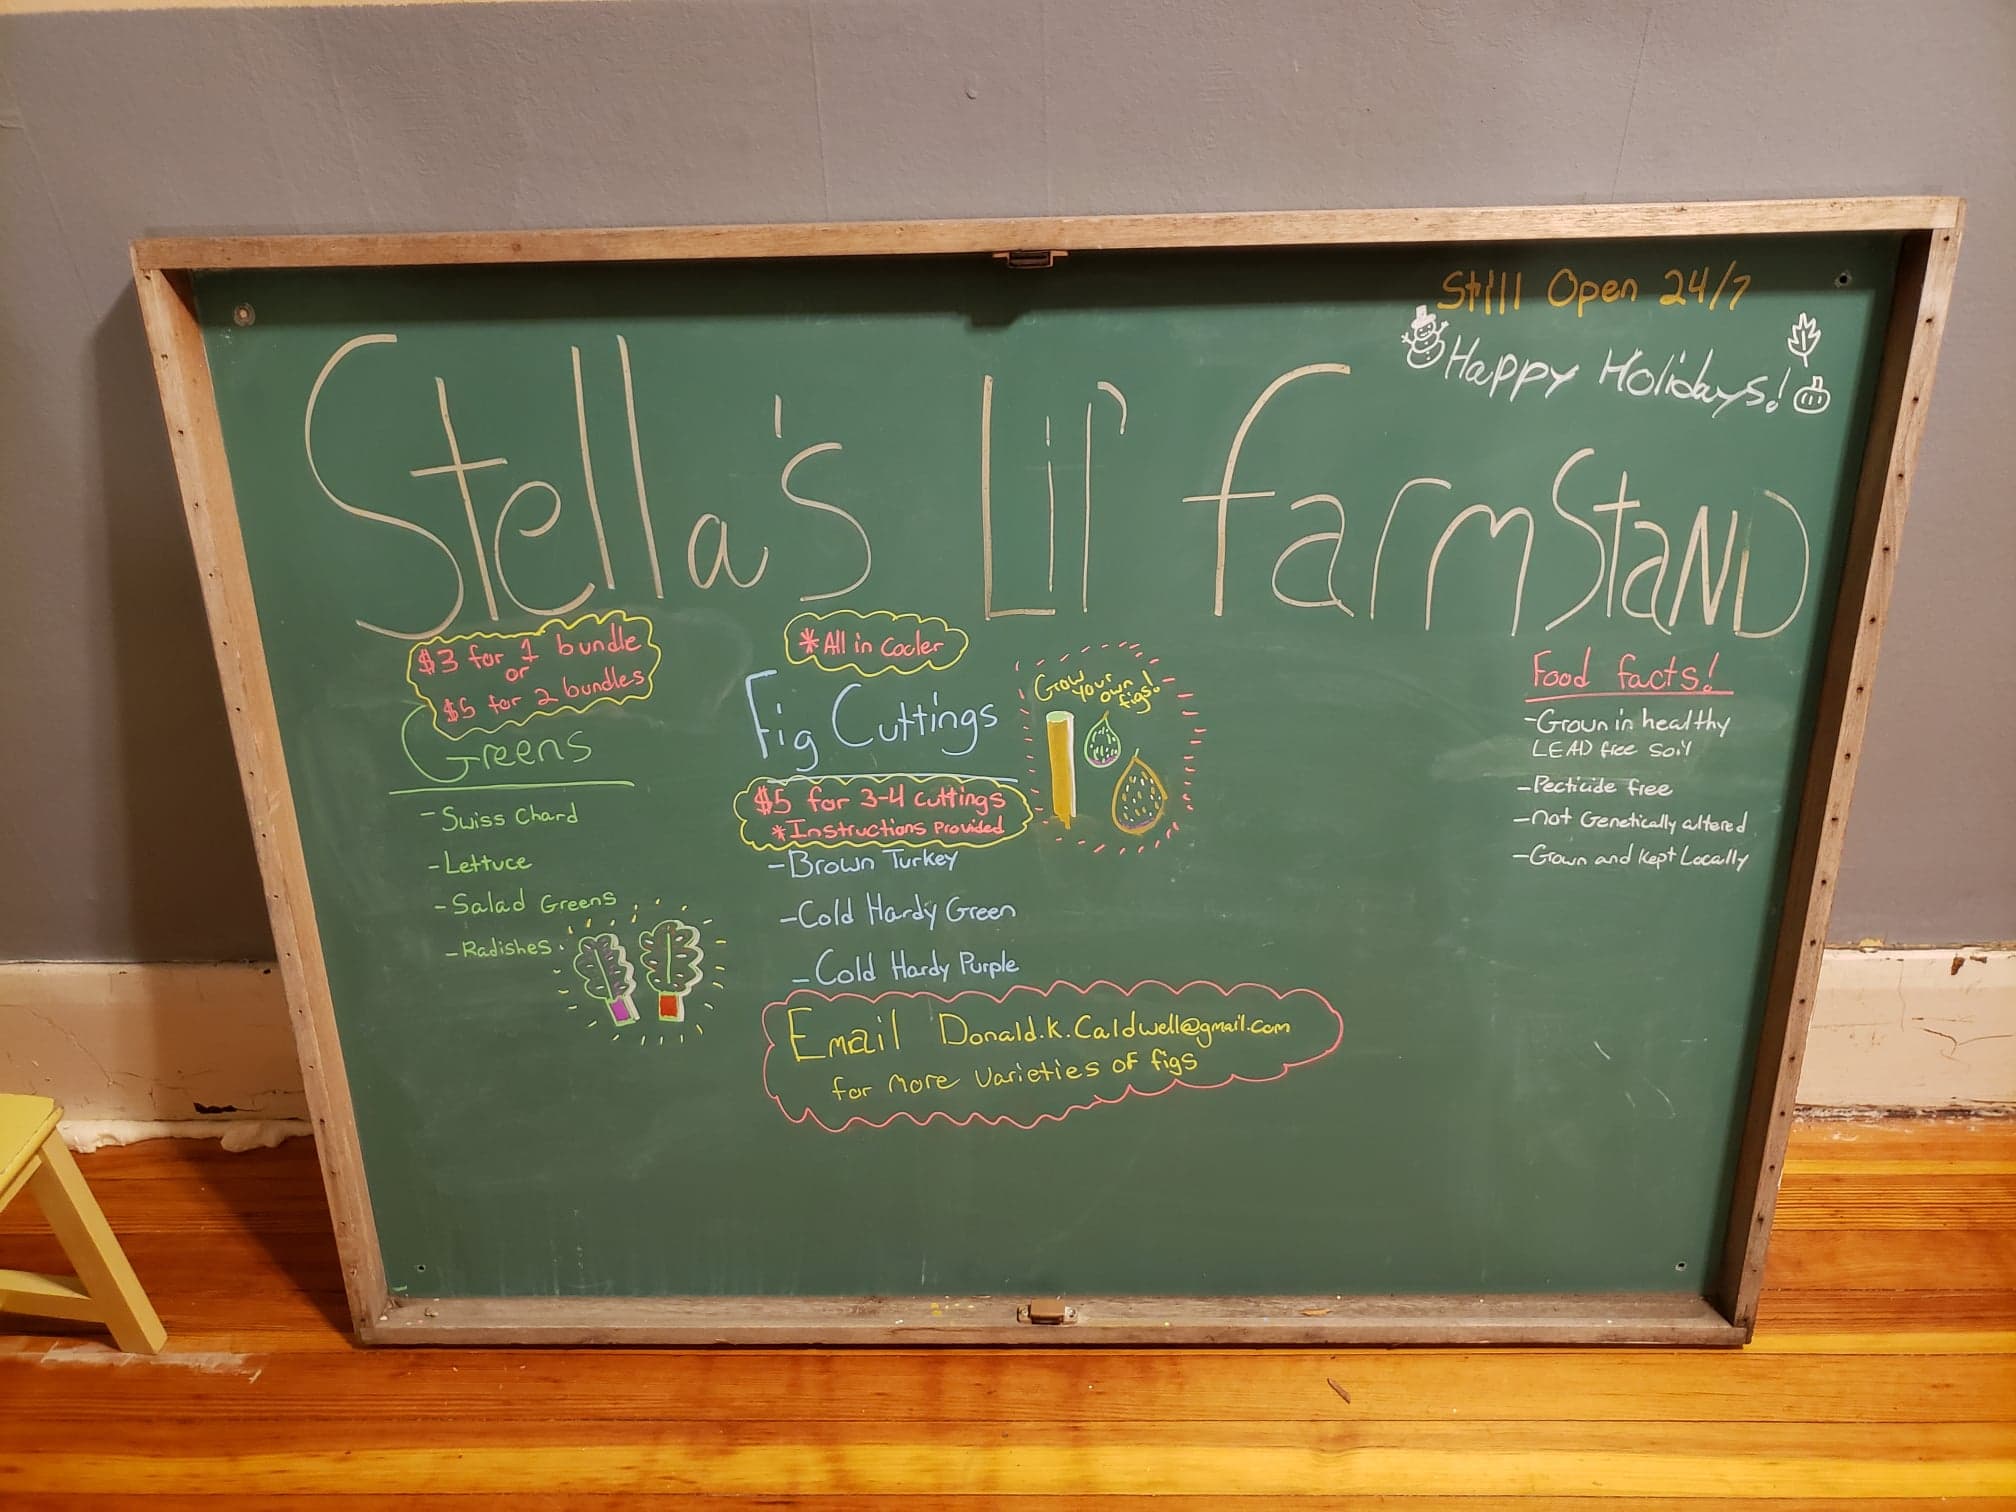 Still Open 24/7
Happy Holidays!
Stella's Lil' farmStaND
$3 for 1 bundle
or
$5 for 2 bundles
Greens
- Swiss Chard
- Lettuce
- Salad Greens
- Radishes
*All in cooler
Fig Cuttings
$5 for 3-4 cuttings
*Instructions Provided
- Brown Turkey
- Cold Hardy Green
- Cold Hardy Purple
Grow
your
own
figs!
Email Donald.K.Caldwell@gmail.com
for more varieties of figs
Food facts!
- Groun in healthy
LEAD free soil
- Pecticide free
- not Genetically altered
- Grown and kept Locally